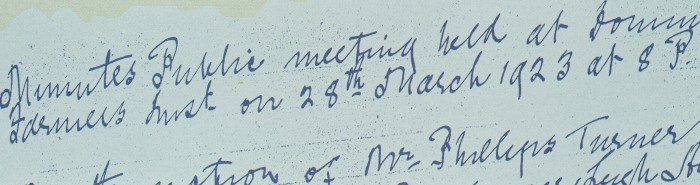 Minutes Public meeting held at
Farmers Inst on 28th March 1923 at 8 P.
of Mr. Phillips Turner
Leigh